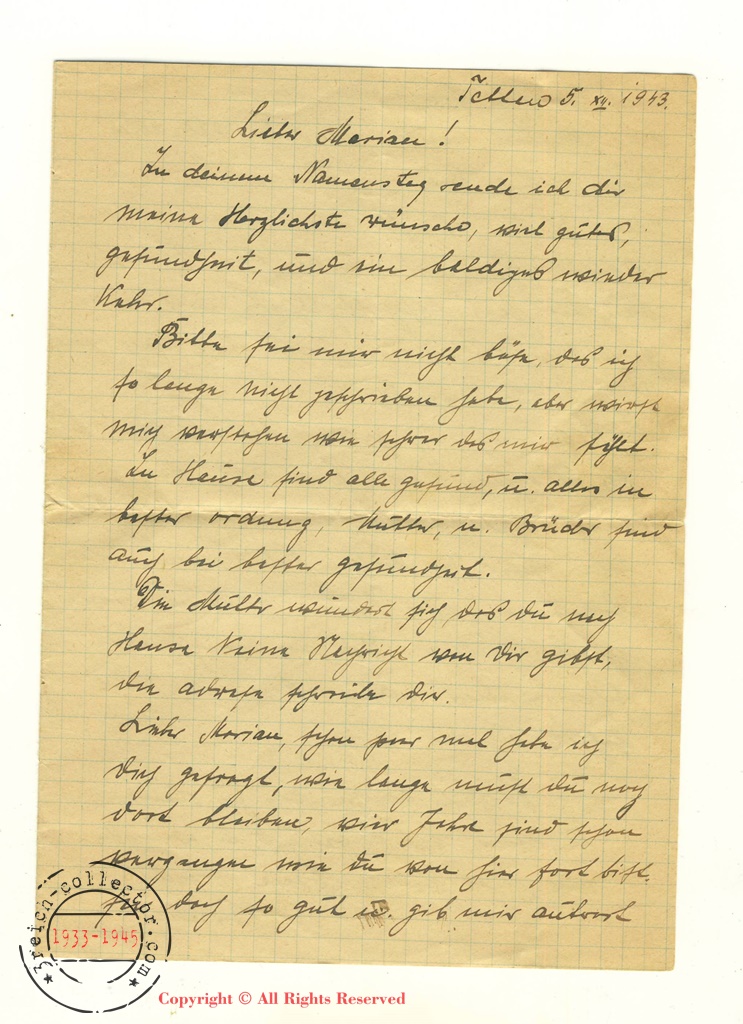 5. XII. 1943.
Lieber Marian!
Zu deinem Namenstag sende ich dir
meine Herzlichste wünsche, viel gutes,
gesundheit, und ein baldiges wieder
Kehr.
Bitte sei mir nicht böse, das ich
so lange nicht geschrieben habe, aber wirst
mich verstehen wie schwer das mir fehlt.
Zu Hause sind alle gesund, u. alles in
bester ordnung, Mutter, u. Brüder sind
auch bei bester gesundheit.
Die Mutter wundert sich das du nach
Hause Keine Nachricht von Dir gibst,
die adrese schreibe dir.
Lieber Marian, schon paar mal habe ich
dich gefragt, wie lange must du noch
dort bleiben, vier Jahre sind schon
vergangen wie du von hier fort bist.
doch so gut u. gib mir antwort
3reich-collector.com
1933-1945
Copyright © All Rights Reserved